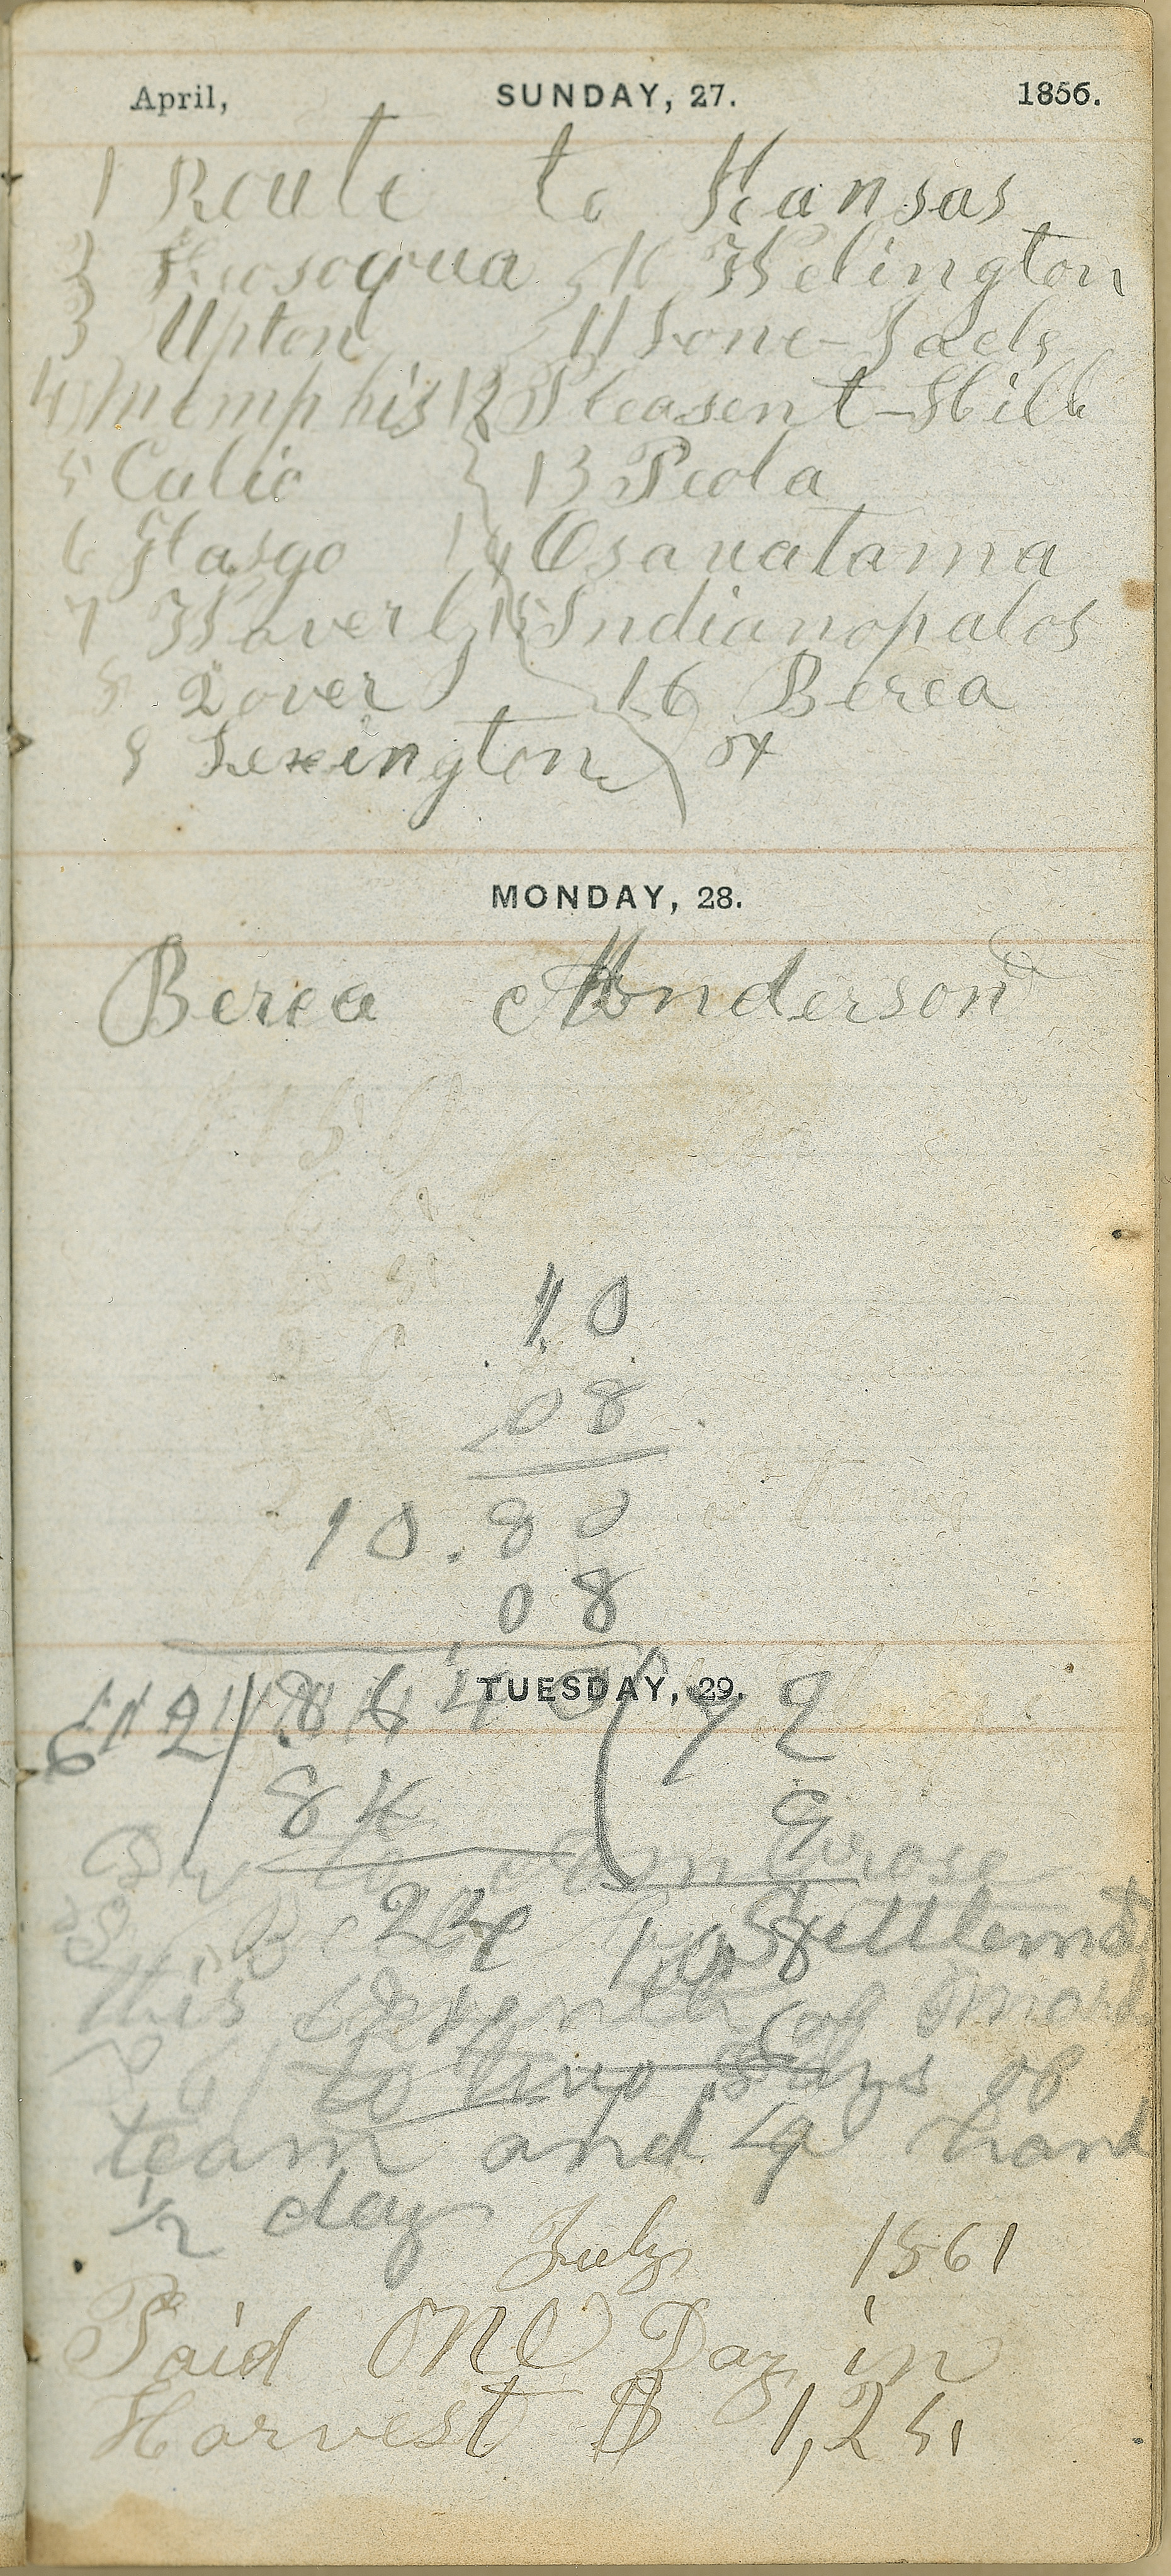 April, SUNDAY, 27. 1856.
1 Route to Kansas
2 Keosoqua 10 Welington
3 Upton 11 Lone-Jack
4 Memphis 12 Pleasent-Hill
5 Culio 13 Peola
6 Glasgo 14 Osawatama
7 Waverly 15 Indianopalos
8 Dover 16 Berea
9 Lexington or
MONDAY, 28.
Berea Anderson
10
08
10.80
08
TUESDAY, 29.
112 8640 72
84 9
Grose
22 Settlement
this seventh of March
to two days of
team and hand
1/2 day
July 1861
Paid One Day in
Harvest $ 1,25